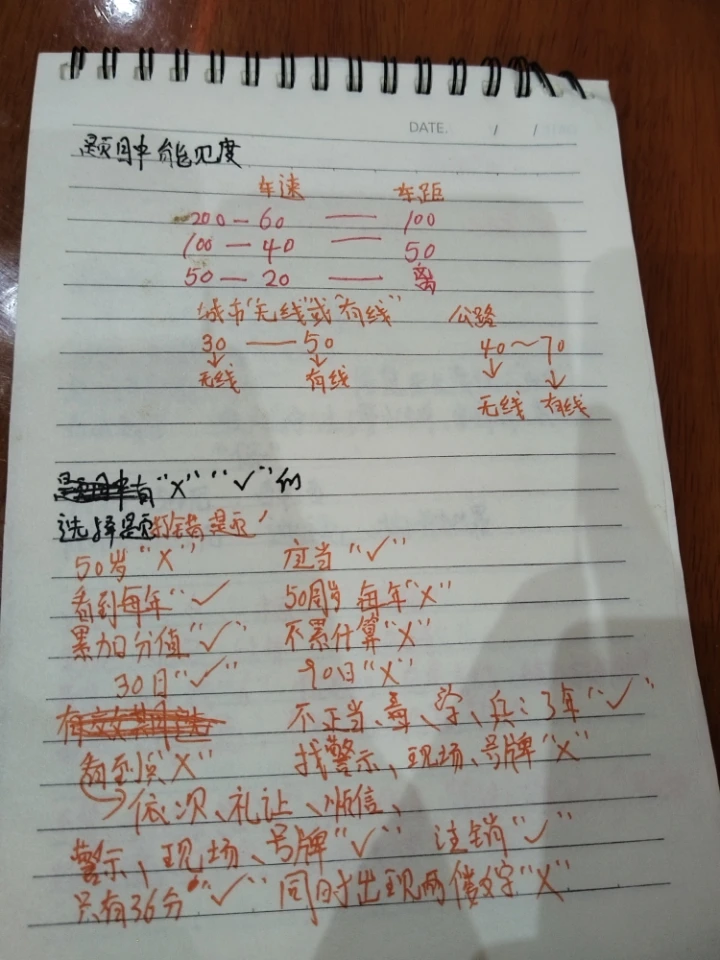 DATE. / /
题目中能见度
车速 车距
200 — 60 — 100
100 — 40 — 50
50 — 20 — 离
城市"无线"或"有线" 公路
30 — 50 40～70
↓ ↓ ↓ ↓
无线 有线 无线 有线
有"X" "✓"的
选择题 打错题
50岁"X" 应当"✓"
看到每年"✓ 50周岁 每年"X"
累加分值"✓" 不累计算"X"
30日"✓" 90日"X"
不正当、毒、学、兵：3年"✓"
看到 "X" 找警示、现场、号牌"X"
依次、礼让、
警示、现场、号牌"✓" 注销"✓"
只有36分"✓" 同时出现两 数字"X"